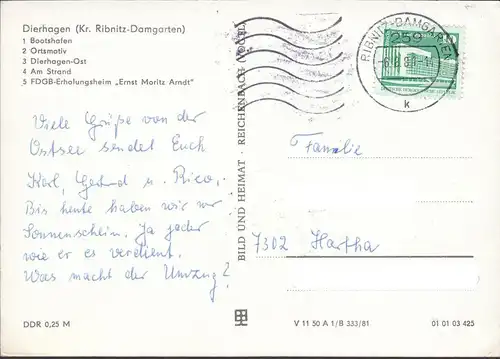 Dierhagen (Kr. Ribnitz-Damgarten)
1 Bootshafen
2 Ortsmotiv
3 Dierhagen-Ost
4 Am Strand
5 FDGB-Erholungsheim „Ernst Moritz Arndt"
RIBNITZ-DAMGARTEN
259
k
Viele Grüße von der
Ostsee sendet Euch
Karl, Gertrud u. Rico.
Bis heute haben wir nur
Sonnenschein. Ja jeder
wie er es verdient.
Was macht der Umzug?
BILD UND HEIMAT REICHENBACH (VOGTL)
Familie
7302 Hartha
DDR 0,25 M
V 11 50 A 1/B 333/81
01 01 03 425